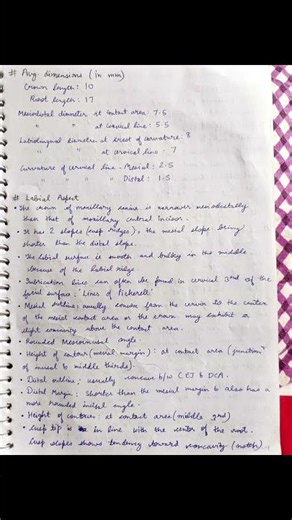 # Avg. dimensions (in mm)
Crown length: 10
Root length: 17
Mesiodistal diameter at contact area: 7.5
" " at cervical line: 5.5
Labiolingual diameter at crest of curvature: 8
" " at cervical line: 7
Curvature of cervical line - Mesial: 2.5
" " " " Distal: 1.5
# Labial Aspect
• The crown of maxillary canine is narrower mesiodistally
than that of maxillary central incisor.
• It has 2 slopes (cusp ridges), the mesial slope being
shorter than the distal slope.
• The labial surface is smooth and bulky in the middle
because of the labial ridge.
• Imbrication lines can often be found in cervical 3rd of the
labial surface: Lines of Pickerell.
• Mesial outline: usually convex from the cervix to the center
of the mesial contact area or the crown may exhibit a
slight concavity above the contact area.
• Rounded Mesioincisal angle
• Height of contour (mesial margin): at contact area (junction
of incisal & middle thirds).
• Distal outline: usually concave b/w CEJ & DCA.
• Distal Margin: Shorter than the mesial margin & also has a
more rounded incisal angle.
• Height of contour: at contact area (middle 3rd)
• Cusp tip is in line with the center of the root.
Cusp slopes shows tendency toward concavity (notch).